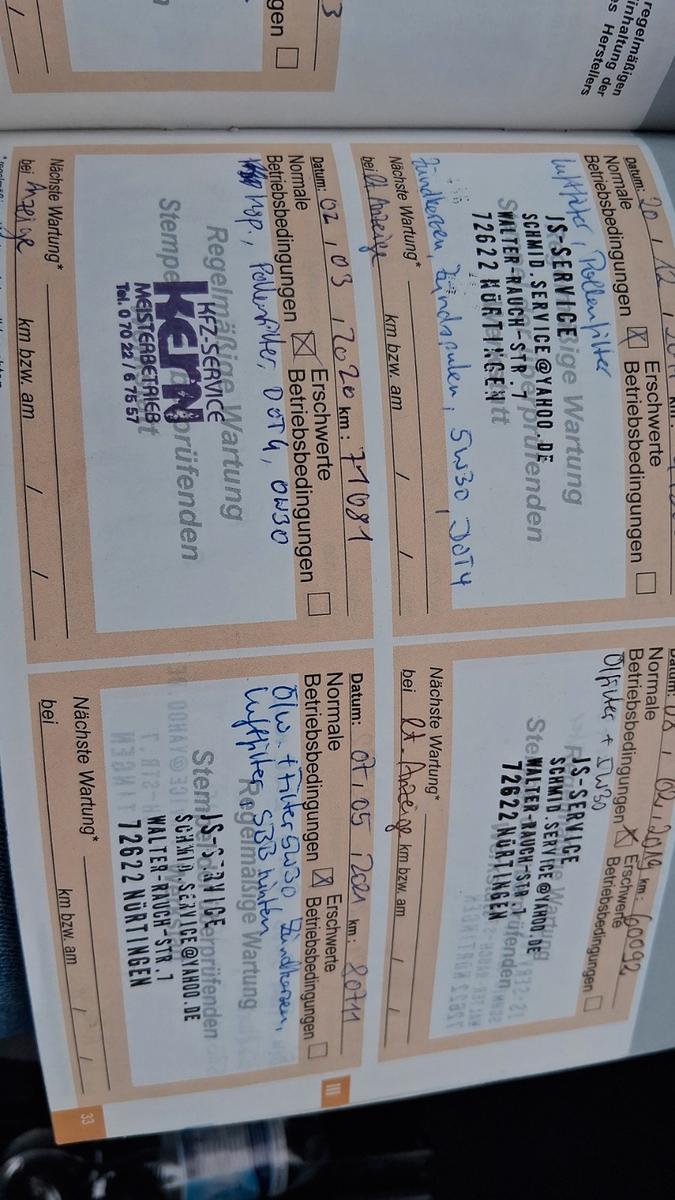 regelmäßigen
inhaltung der
Herstellers
3
gen
Datum: 20 / 12 /
Normale
Betriebsbedingungen ☒
Erschwerte
Betriebsbedingungen ☐
Luftfilter, Pollenfilter
JS-SERVICE
SCHMID.SERVICE@YAHOO.DE
WALTER-RAUCH-STR.7
72622 NÜRTINGEN
Zündkerzen, Zündspulen, 5W30, DOT4
Nächste Wartung*
bei lt Anzeige km bzw. am / /
km: 60092
Normale
Betriebsbedingungen ☒
Erschwerte
Betriebsbedingungen ☐
Ölfilter + 5W30
JS-SERVICE
SCHMID.SERVICE@YAHOO.DE
WALTER-RAUCH-STR.7
72622 NÜRTINGEN
Nächste Wartung*
bei lt. Anzeige km bzw. am / /
Datum: 02 / 03 / 2020 km: 71081
Normale
Betriebsbedingungen ☒
Erschwerte
Betriebsbedingungen ☐
Pollenfilter, DOT4, 0W30
Regelmäßige Wartung
Stempel prüfenden
KFZ-SERVICE
kern
MEISTERBETRIEB
Tel. 0 70 22 / 6 75 57
Nächste Wartung*
bei Anzeige km bzw. am / /
Datum: 07 / 05 / 2021 km: 80711
Normale
Betriebsbedingungen ☒
Erschwerte
Betriebsbedingungen ☐
Ö/W. + Filter 5W30 Zündkerzen,
Luftfilter, SBB hinten
Regelmäßige Wartung
JS-SERVICE
SCHMID.SERVICE@YAHOO.DE
WALTER-RAUCH-STR.7
72622 NÜRTINGEN
Nächste Wartung*
bei km bzw. am / /
III
33